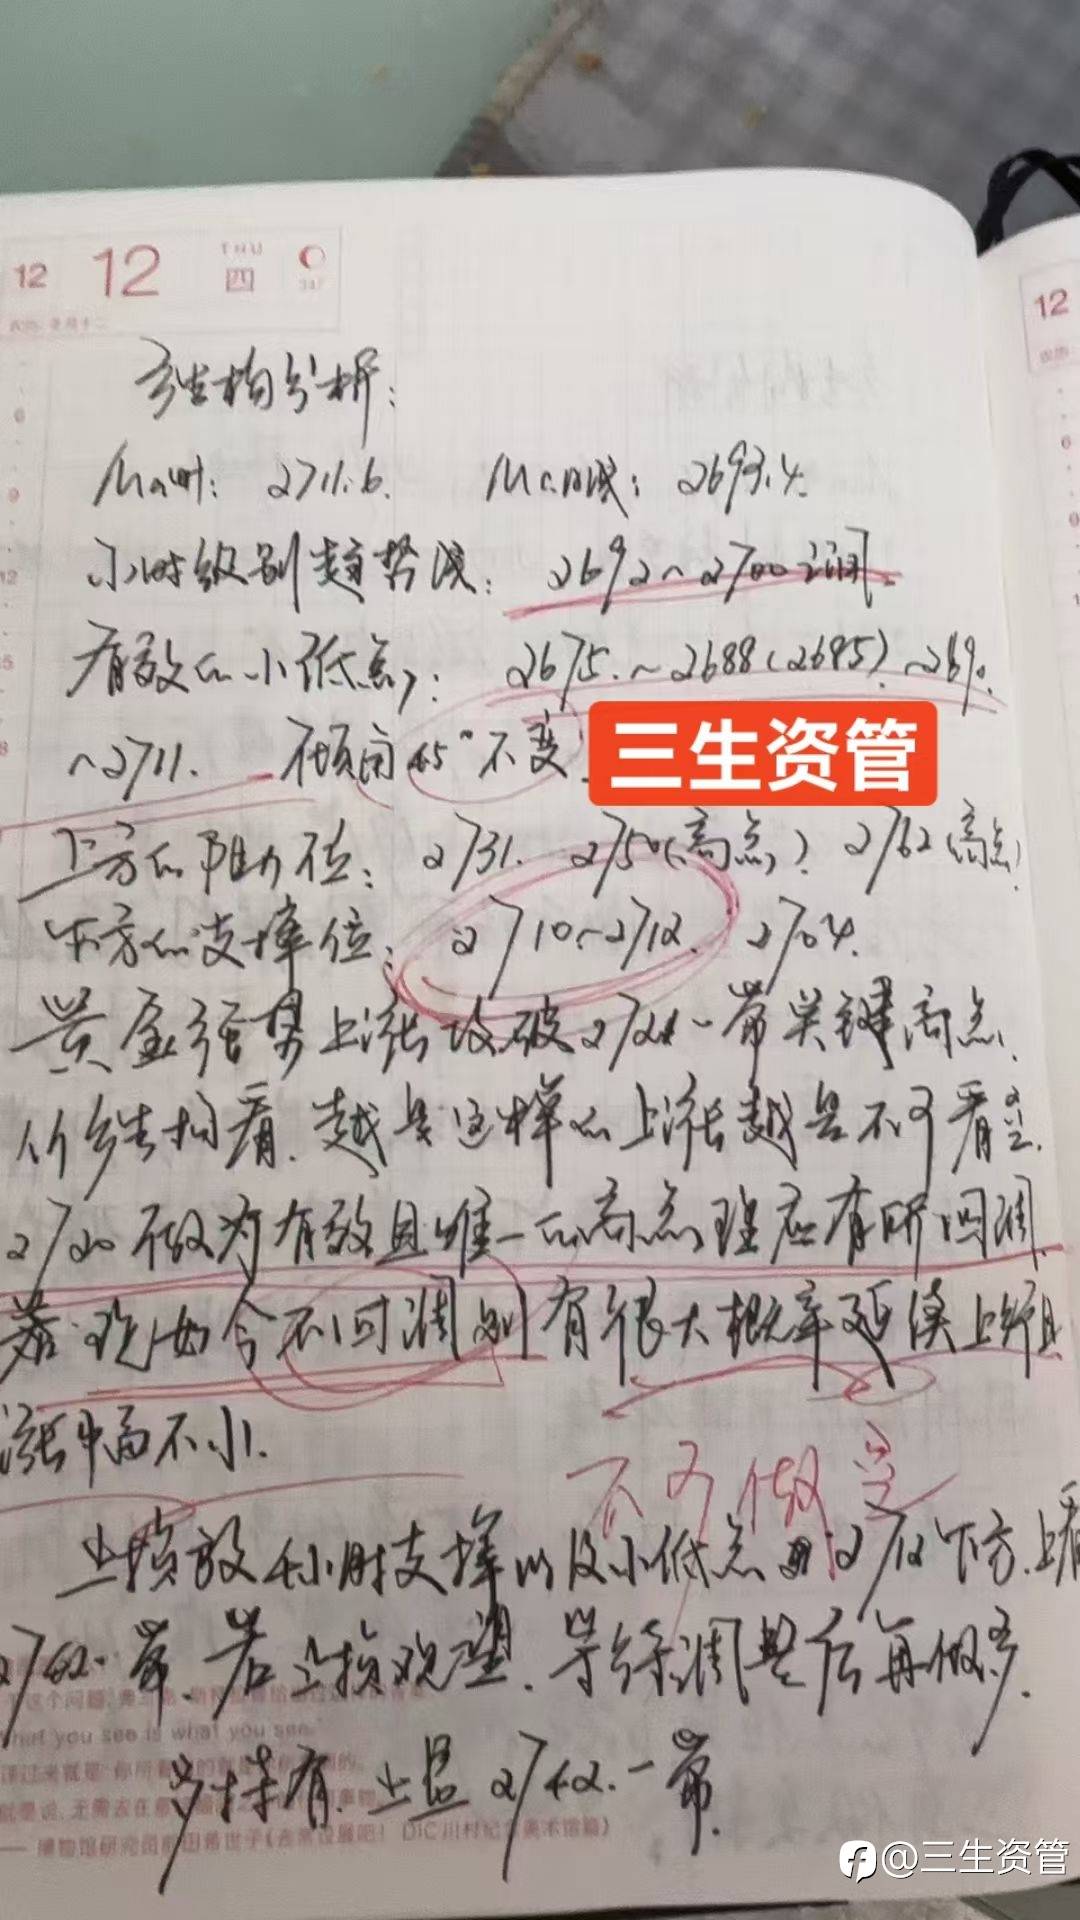 12 12 THU 四
12
结构分析:
2711.6. 2693.4.
小时级别趋势线: 2692~2700之间.
有效的小低点: 2675.~2688(2685).~269
~2711. 倾角45°不变.
三生资管
上方的阻力位: 2731. 2750(高点) 2762(高点)
下方的支撑位: 2710~2712. 2704.
黄金强势上涨攻破272一带关键高点.
从结构看.越是这样的上涨越是不可看空.
2720做为有效且唯一的高点理应有所回调.
若现如今不回调则有很大概率延续上行且
涨幅不小.
不可做空
止损放在小时支撑以及小低点 2712下方.上看
一带.若止损观望.等待调整后再做多.
hat you see is what you see.
多持有.止盈2742.一带.
@三生资管